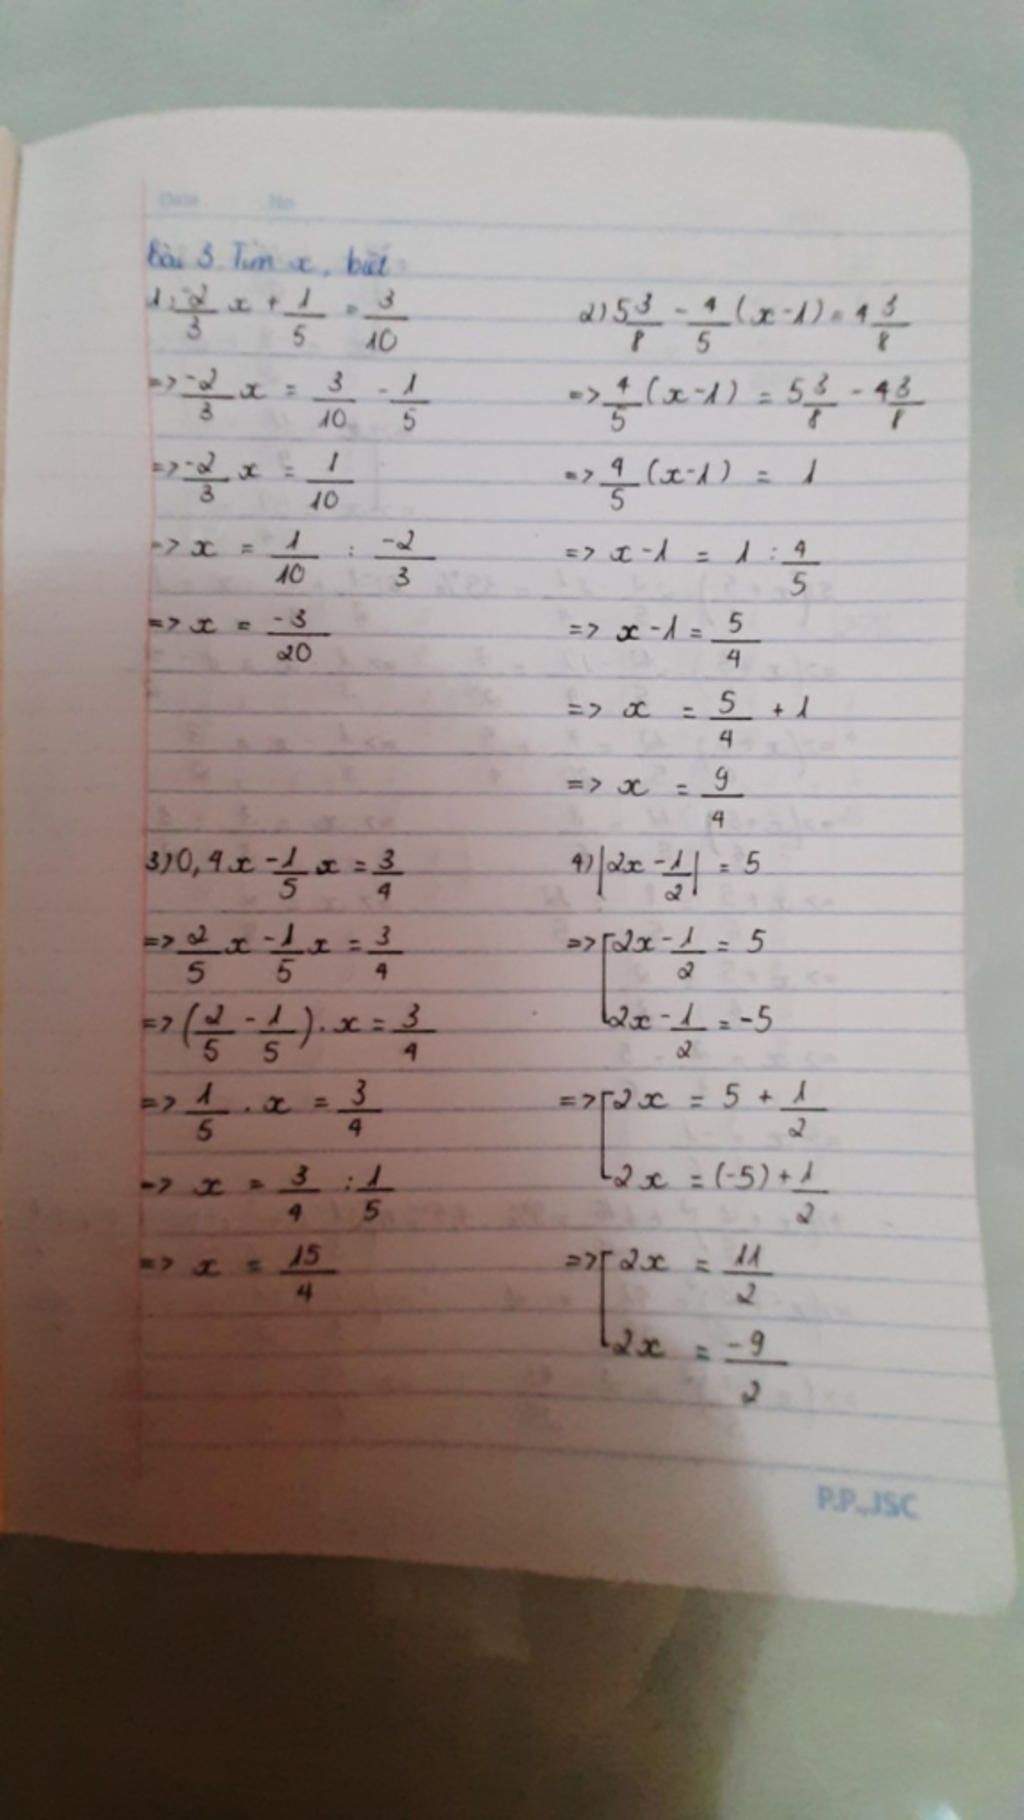 Date No
Bài 3 Tìm x, biết:
1) -2/3 x + 1/5 = 3/10
=> -2/3 x = 3/10 - 1/5
=> -2/3 x = 1/10
=> x = 1/10 : -2/3
=> x = -3/20
2) 5 3/8 - 4/5 (x-1) = 4 3/8
=> 4/5 (x-1) = 5 3/8 - 4 3/8
=> 4/5 (x-1) = 1
=> x-1 = 1 : 4/5
=> x-1 = 5/4
=> x = 5/4 + 1
=> x = 9/4
3) 0,4x - 1/5 x = 3/4
=> 2/5 x - 1/5 x = 3/4
=> (2/5 - 1/5) . x = 3/4
=> 1/5 . x = 3/4
=> x = 3/4 : 1/5
=> x = 15/4
4) |2x - 1/2| = 5
=> [2x - 1/2 = 5
2x - 1/2 = -5
=> [2x = 5 + 1/2
2x = (-5) + 1/2
=> [2x = 11/2
2x = -9/2
P.P.JSC